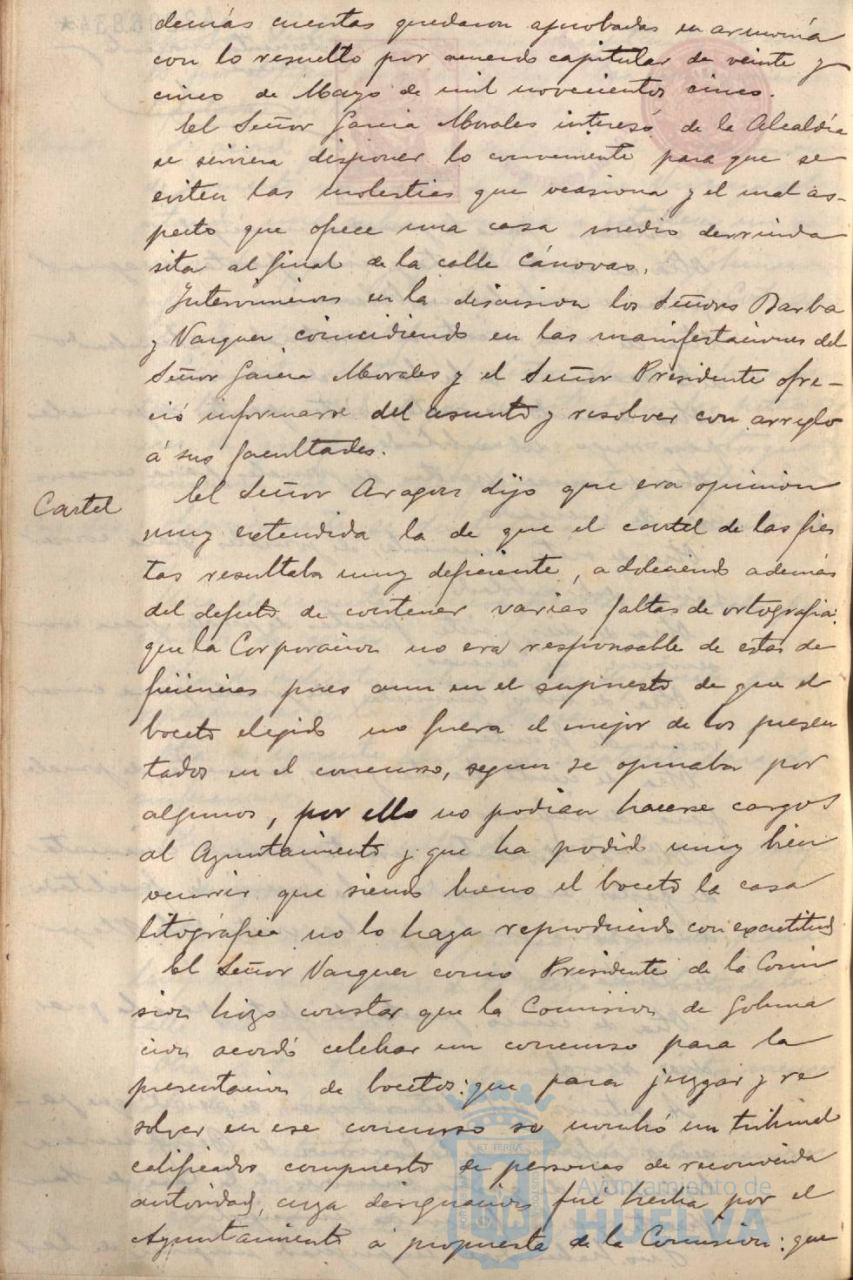 demás cuentas quedaron aprobadas en armonía
con lo resuelto por acuerdo capitular de veinte y
cinco de Mayo de mil novecientos cinco.
El Señor Garcia Morales interesó de la Alcaldía
se sirviera disponer lo conveniente para que se
eviten las molestias que ocasiona y el mal as-
pecto que ofrece una casa medio derruida
sita al final de la calle Cánovas.
Intervinieron en la discusion los Señores Barba
y Vazquez coincidiendo en las manifestaciones del
Señor Garcia Morales y el Señor Presidente ofre-
ció informarse del asunto y resolver con arreglo
á sus facultades.
Cartel
El Señor Aragon dijo que era opinion
muy extendida la de que el cartel de las fies
tas resultaba muy deficiente, adoleciendo además
del defecto de contener varias faltas de ortografia:
que la Corporacion no era responsable de estas de
ficiencias pues aun en el supuesto de que el
boceto elegido no fuera el mejor de los presen
tados en el concurso, segun se opinaba por
algunos, por ello no podian hacerse cargos
al Ayuntamiento y que ha podido muy bien
ocurrir que siendo bueno el boceto la casa
litográfica no lo haya reproducido con exactitud
El Señor Vazquez como Presidente de la Comi
sion hizo constar que la Comision de Goberna
cion acordó celebrar un concurso para la
presentacion de bocetos: que para juzgar y re
solver en ese concurso se nombró un tribunal
calificador compuesto de personas de reconocida
autoridad, cuya designacion fué hecha por el
Ayuntamiento á propuesta de la Comision: que
Ayuntamiento de
HUELVA